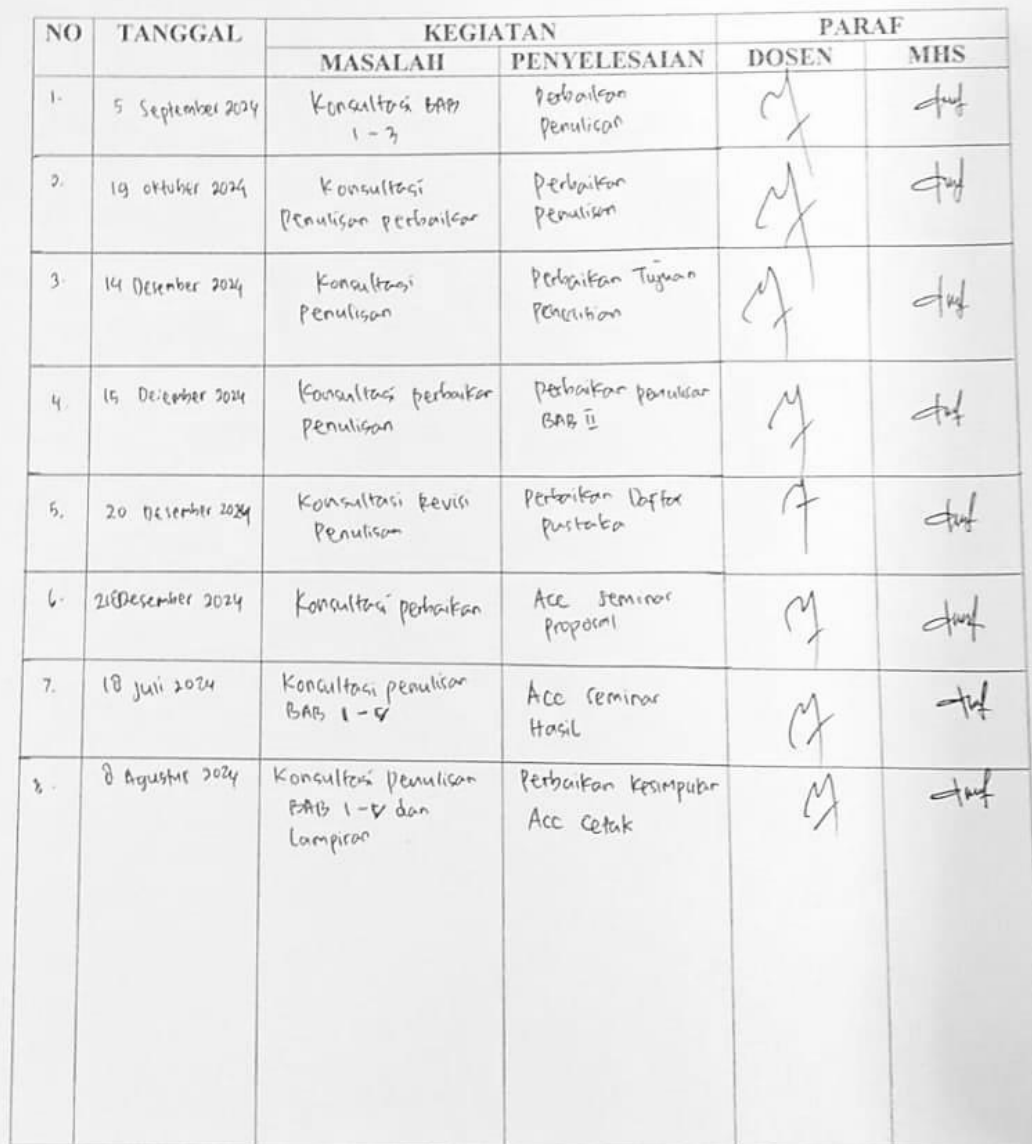 NO TANGGAL KEGIATAN PARAF
MASALAH PENYELESAIAN DOSEN MHS
1. 5 September 2024 Konsultasi BAB Perbaikan
1 - 3 Penulisan
2. 19 oktober 2024 Konsultasi Perbaikan
Penulisan perbaikan Penulisan
3. 14 Desember 2024 Konsultasi Perbaikan Tujuan
Penulisan Penelitian
4. 15 Desember 2024 Konsultasi perbaikan Perbaikan penulisan
Penulisan BAB II
5. 20 Desember 2024 Konsultasi Revisi Perbaikan Daftar
Penulisan pustaka
6. 21 Desember 2024 Konsultasi perbaikan Acc seminar
Proposal
7. 18 juli 2024 Konsultasi penulisan Acc seminar
BAB 1 - V Hasil
8. 8 Agustus 2024 Konsultasi Penulisan Perbaikan Kesimpulan
BAB 1 - V dan Acc Cetak
Lampiran